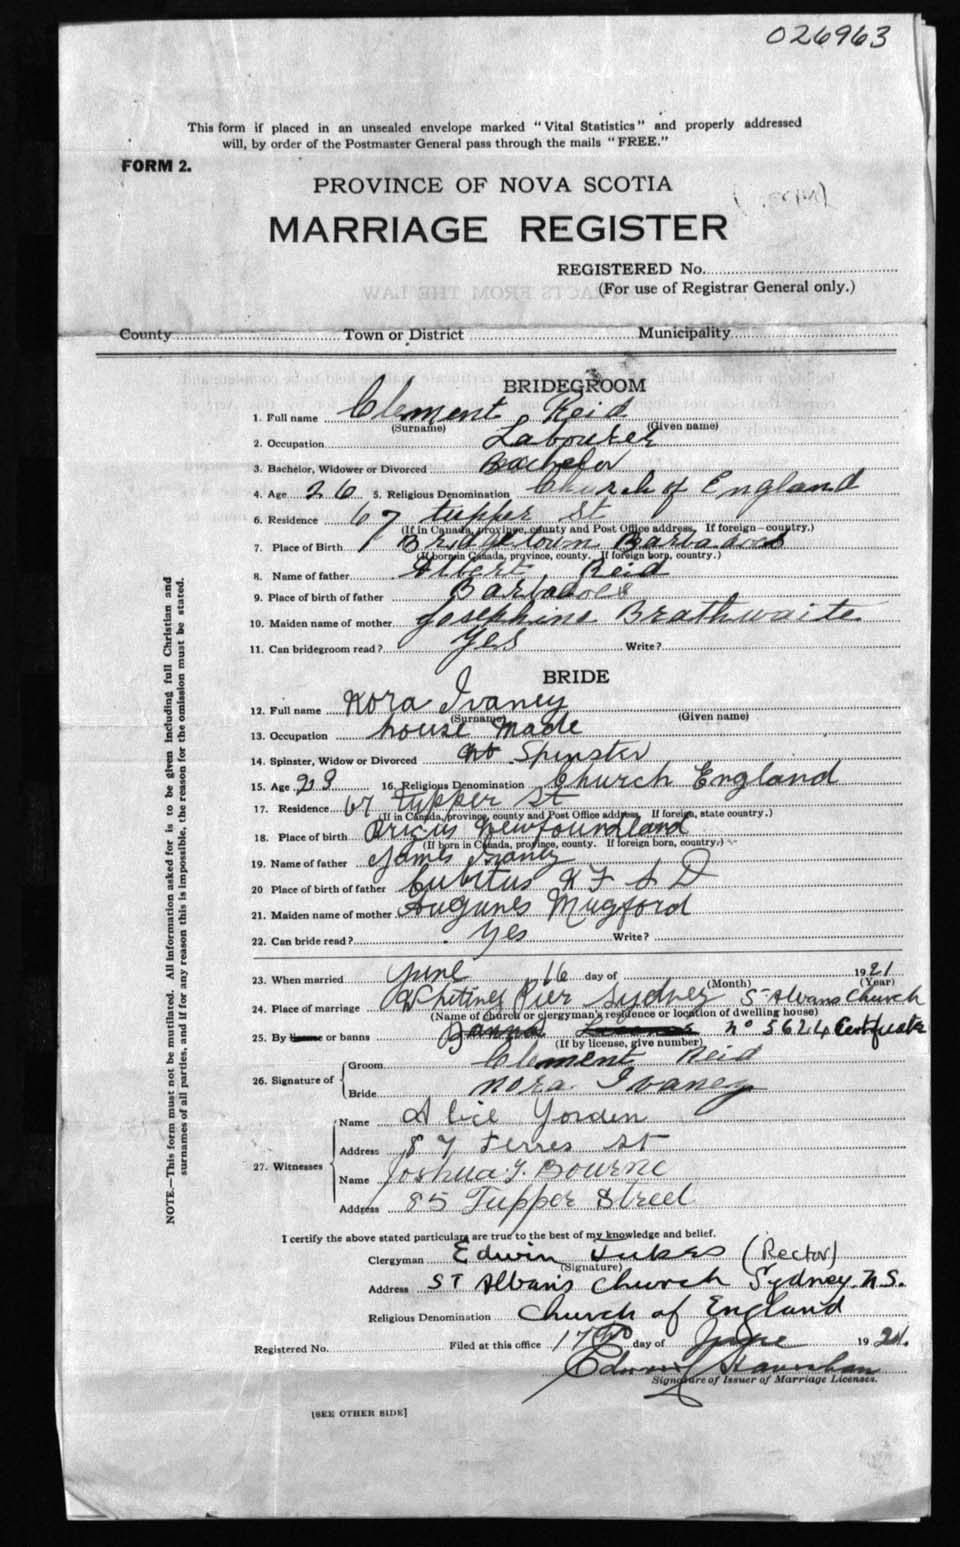 026963
This form if placed in an unsealed envelope marked "Vital Statistics" and properly addressed
will, by order of the Postmaster General pass through the mails "FREE."
FORM 2.
PROVINCE OF NOVA SCOTIA
MARRIAGE REGISTER
REGISTERED No.
(For use of Registrar General only.)
County Town or District Municipality
BRIDEGROOM
1. Full name Clement Reid
(Surname) (Given name)
2. Occupation Labourer
3. Bachelor, Widower or Divorced Bachelor
4. Age 26 5. Religious Denomination Church of England
6. Residence 67 tupper St
(If in Canada, province, county and Post Office address. If foreign—country.)
7. Place of Birth Bridgetown Barbados
(If born in Canada, province, county. If foreign born, country.)
8. Name of father Albert Reid
9. Place of birth of father Barbadoes
10. Maiden name of mother Josephine Brathwaite
11. Can bridegroom read? Yes Write?
BRIDE
12. Full name Nora Ivaney
(Surname) (Given name)
13. Occupation house Made
14. Spinster, Widow or Divorced Spinster
15. Age 23 16. Religious Denomination Church England
17. Residence 67 Tupper St
(If in Canada, province, county and Post Office address. If foreign, state country.)
18. Place of birth Brigus Newfoundland
(If born in Canada, province, county. If foreign born, country.)
19. Name of father James Ivaney
20 Place of birth of father Cubitus N F L D
21. Maiden name of mother Mugford
22. Can bride read? Yes Write?
23. When married June 16 day of 1921
(Month) (Year)
24. Place of marriage Whitney Pier Sydney St Albans Church
(Name of church or clergyman's residence or location of dwelling house)
25. By license or banns No 5624 Certificate
(If by license, give number)
26. Signature of Groom Clement Reid
Bride Nora Ivaney
27. Witnesses Name Alice Yorden
Address 87 Ferres St
Name Joshua J. Bourne
Address 85 Tupper Street
I certify the above stated particulars are true to the best of my knowledge and belief.
Clergyman Edwin Jukes (Rector)
(Signature)
Address St Alban's Church Sydney. N.S.
Religious Denomination Church of England
Registered No. Filed at this office 17 day of June 1921.
Signature of Issuer of Marriage Licenses.
[SEE OTHER SIDE]
NOTE.—This form must not be mutilated. All information asked for is to be given including full Christian and
surnames of all parties, and if for any reason this is impossible, the reason for the omission must be stated.